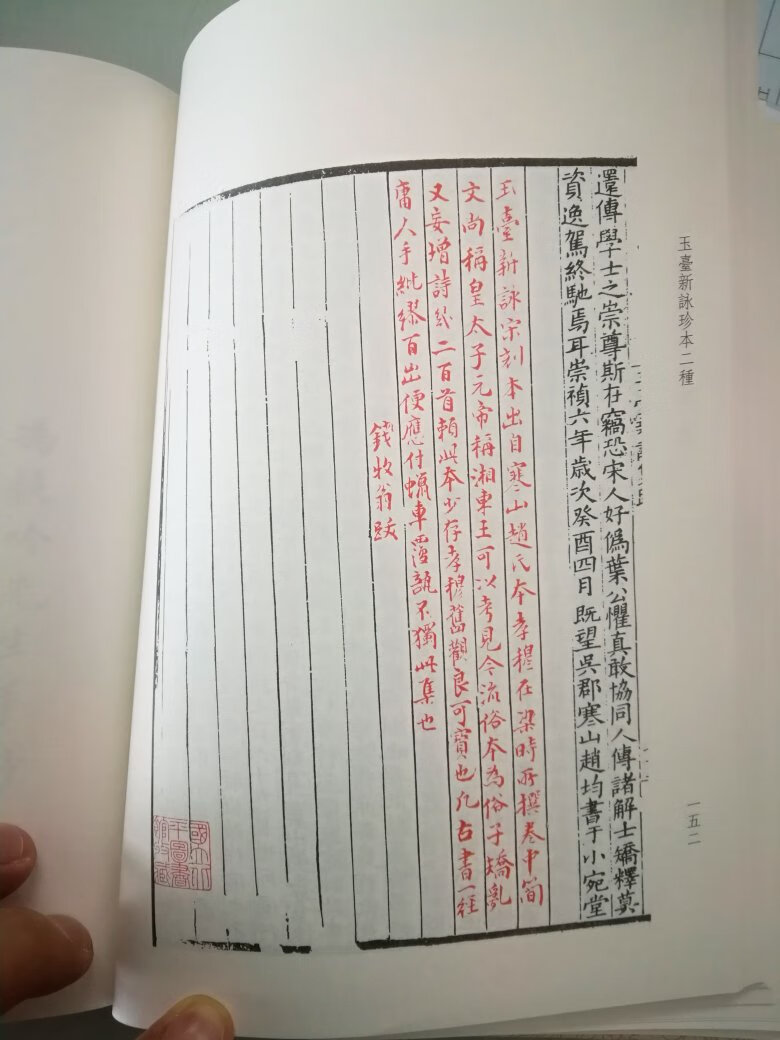 玉臺新詠珍本二種
一五二
還傳學士之崇尊斯在竊恐宋人好僞葉公懼真敢協同人傳諸解士矯釋莫
資逸駕終馳焉耳崇禎六年歲次癸酉四月既望吳郡寒山趙均書于小宛堂
玉臺新詠宋刻本出自寒山趙氏本孝穆在梁時所撰卷中簡
文尚稱皇太子元帝稱湘東王可以考見今流俗本為俗子矯亂
又妄增詩幾二百首賴此本少存孝穆舊觀良可寶也凡古書一經
庸人手紕繆百出便應付蠟車覆瓿不獨此集也
錢牧翁跋
國立北
平圖書
館收藏